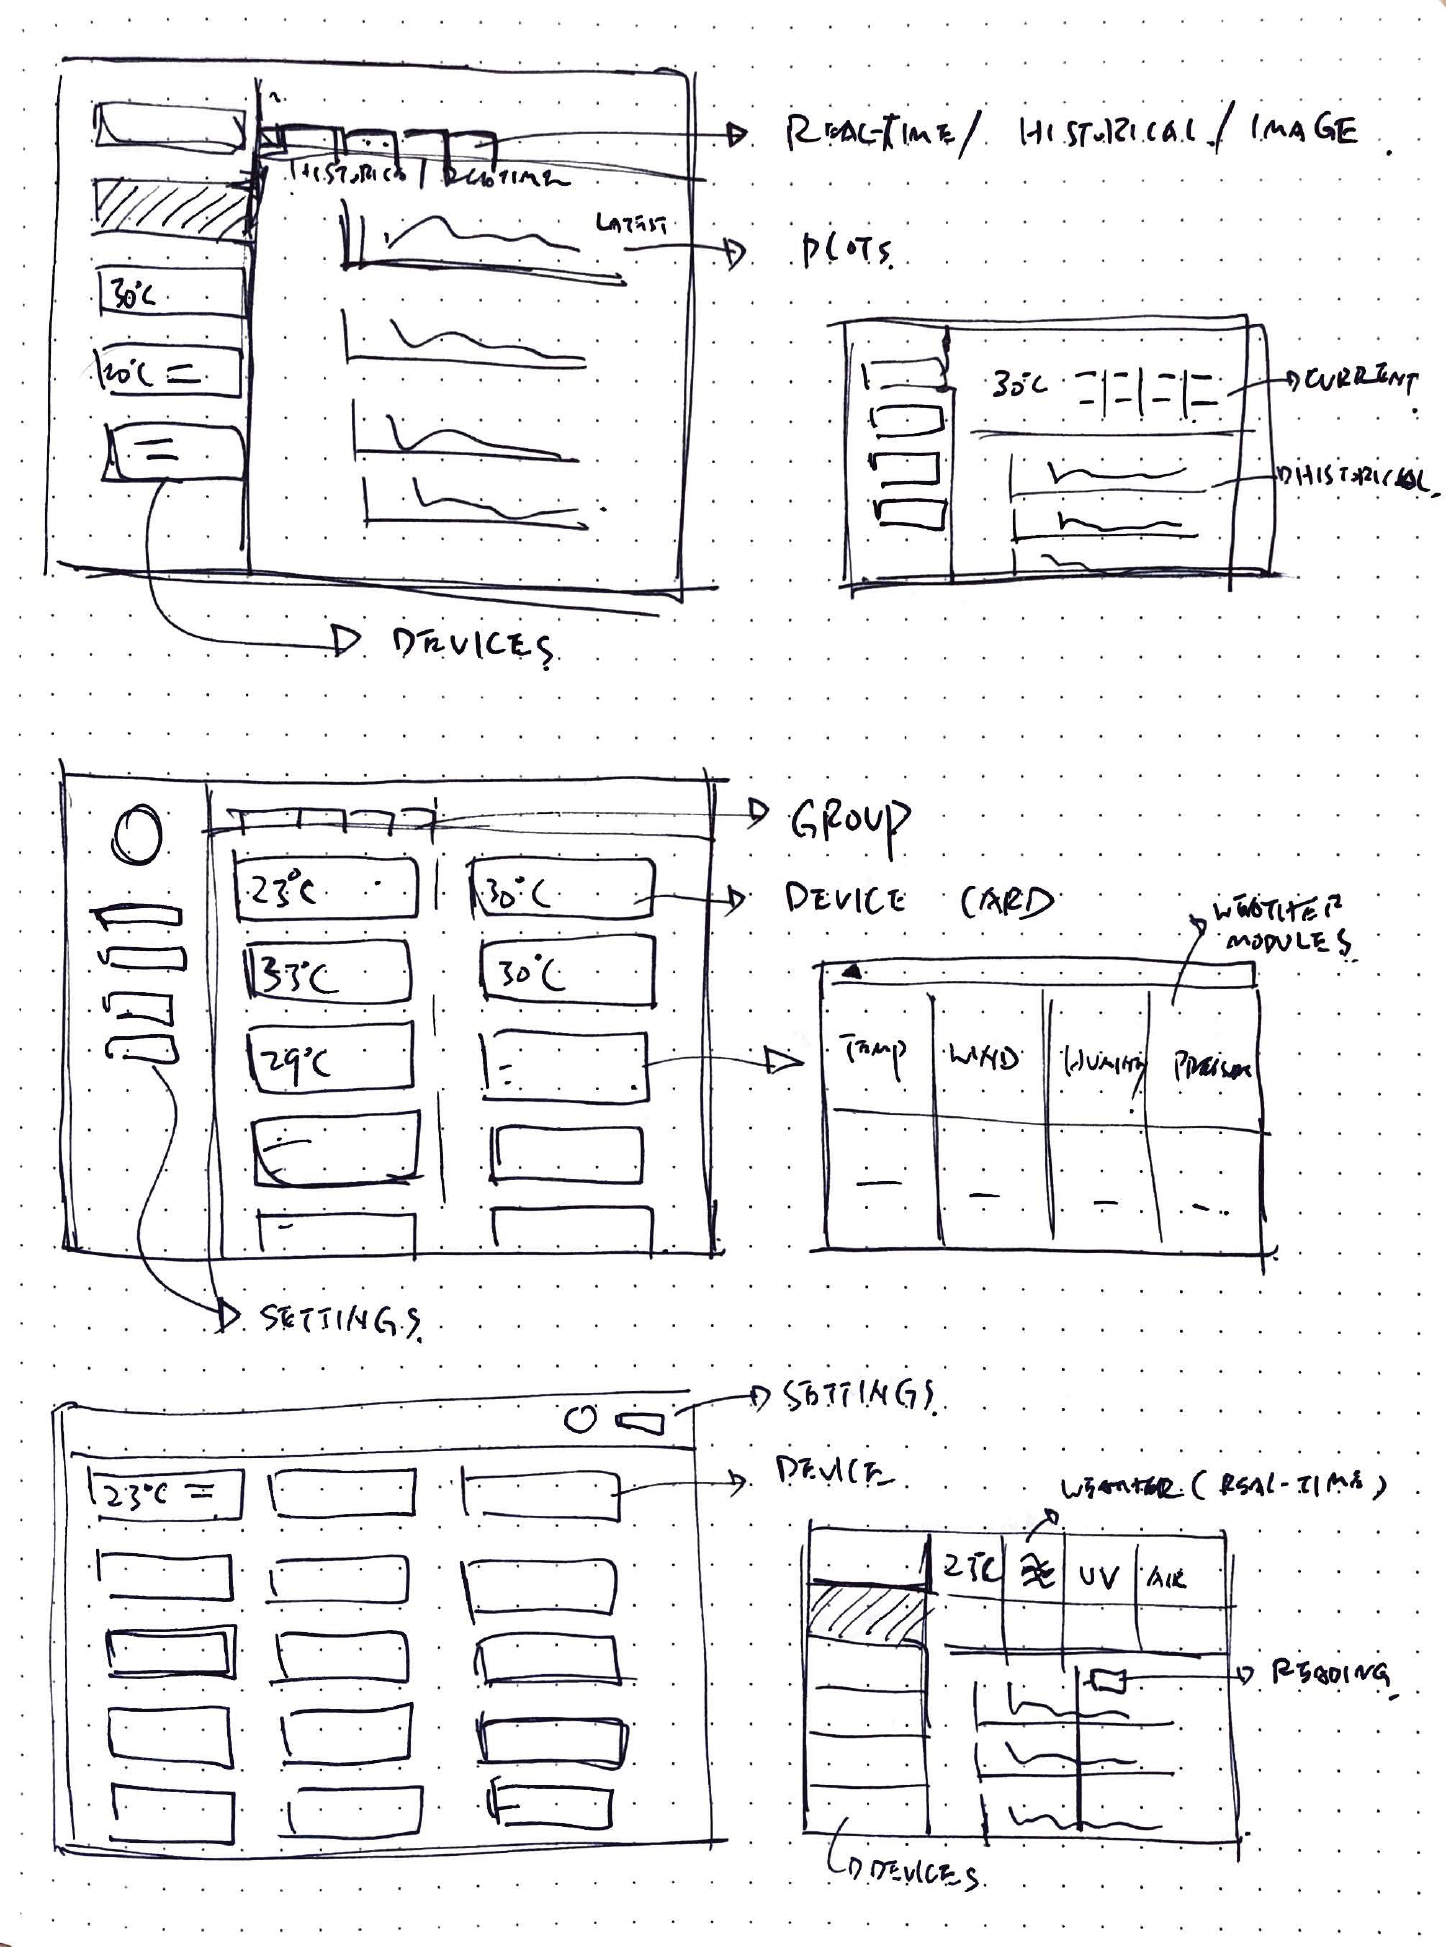 REAL-TIME / HISTORICAL / IMAGE
HISTORICAL | REALTIME
LATEST
PLOTS
30°C
20°C
DEVICES
30°C
CURRENT
HISTORICAL
GROUP
23°C
30°C
DEVICE CARD
33°C
30°C
29°C
WEATHER
MODULES
TEMP
WIND
HUMIDITY
PRESSURE
SETTINGS
SETTINGS
23°C
DEVICE
WEATHER (REAL-TIME)
23°C
UV
AIR
READING
DEVICES